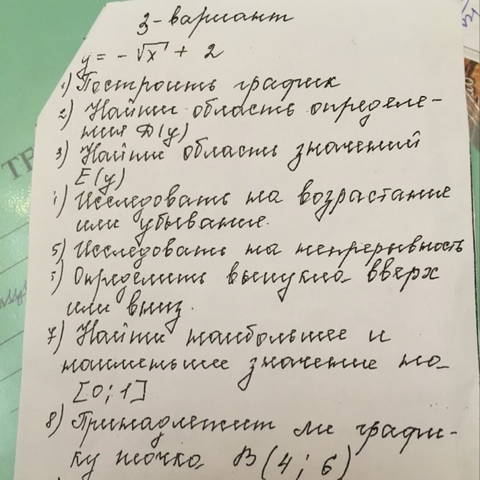 3-вариант
y = -√x + 2
1) Построить график
2) Найти область определе-
ния D(y)
3) Найти область значений
E(y)
4) Исследовать на возрастание
или убывание.
5) Исследовать на непрерывность
6) Определить выпукла вверх
или вниз.
7) Найти наибольшее и
наименьшее значение на
[0; 1]
8) Принадлежит ли графи-
ку точка B(4; 6)